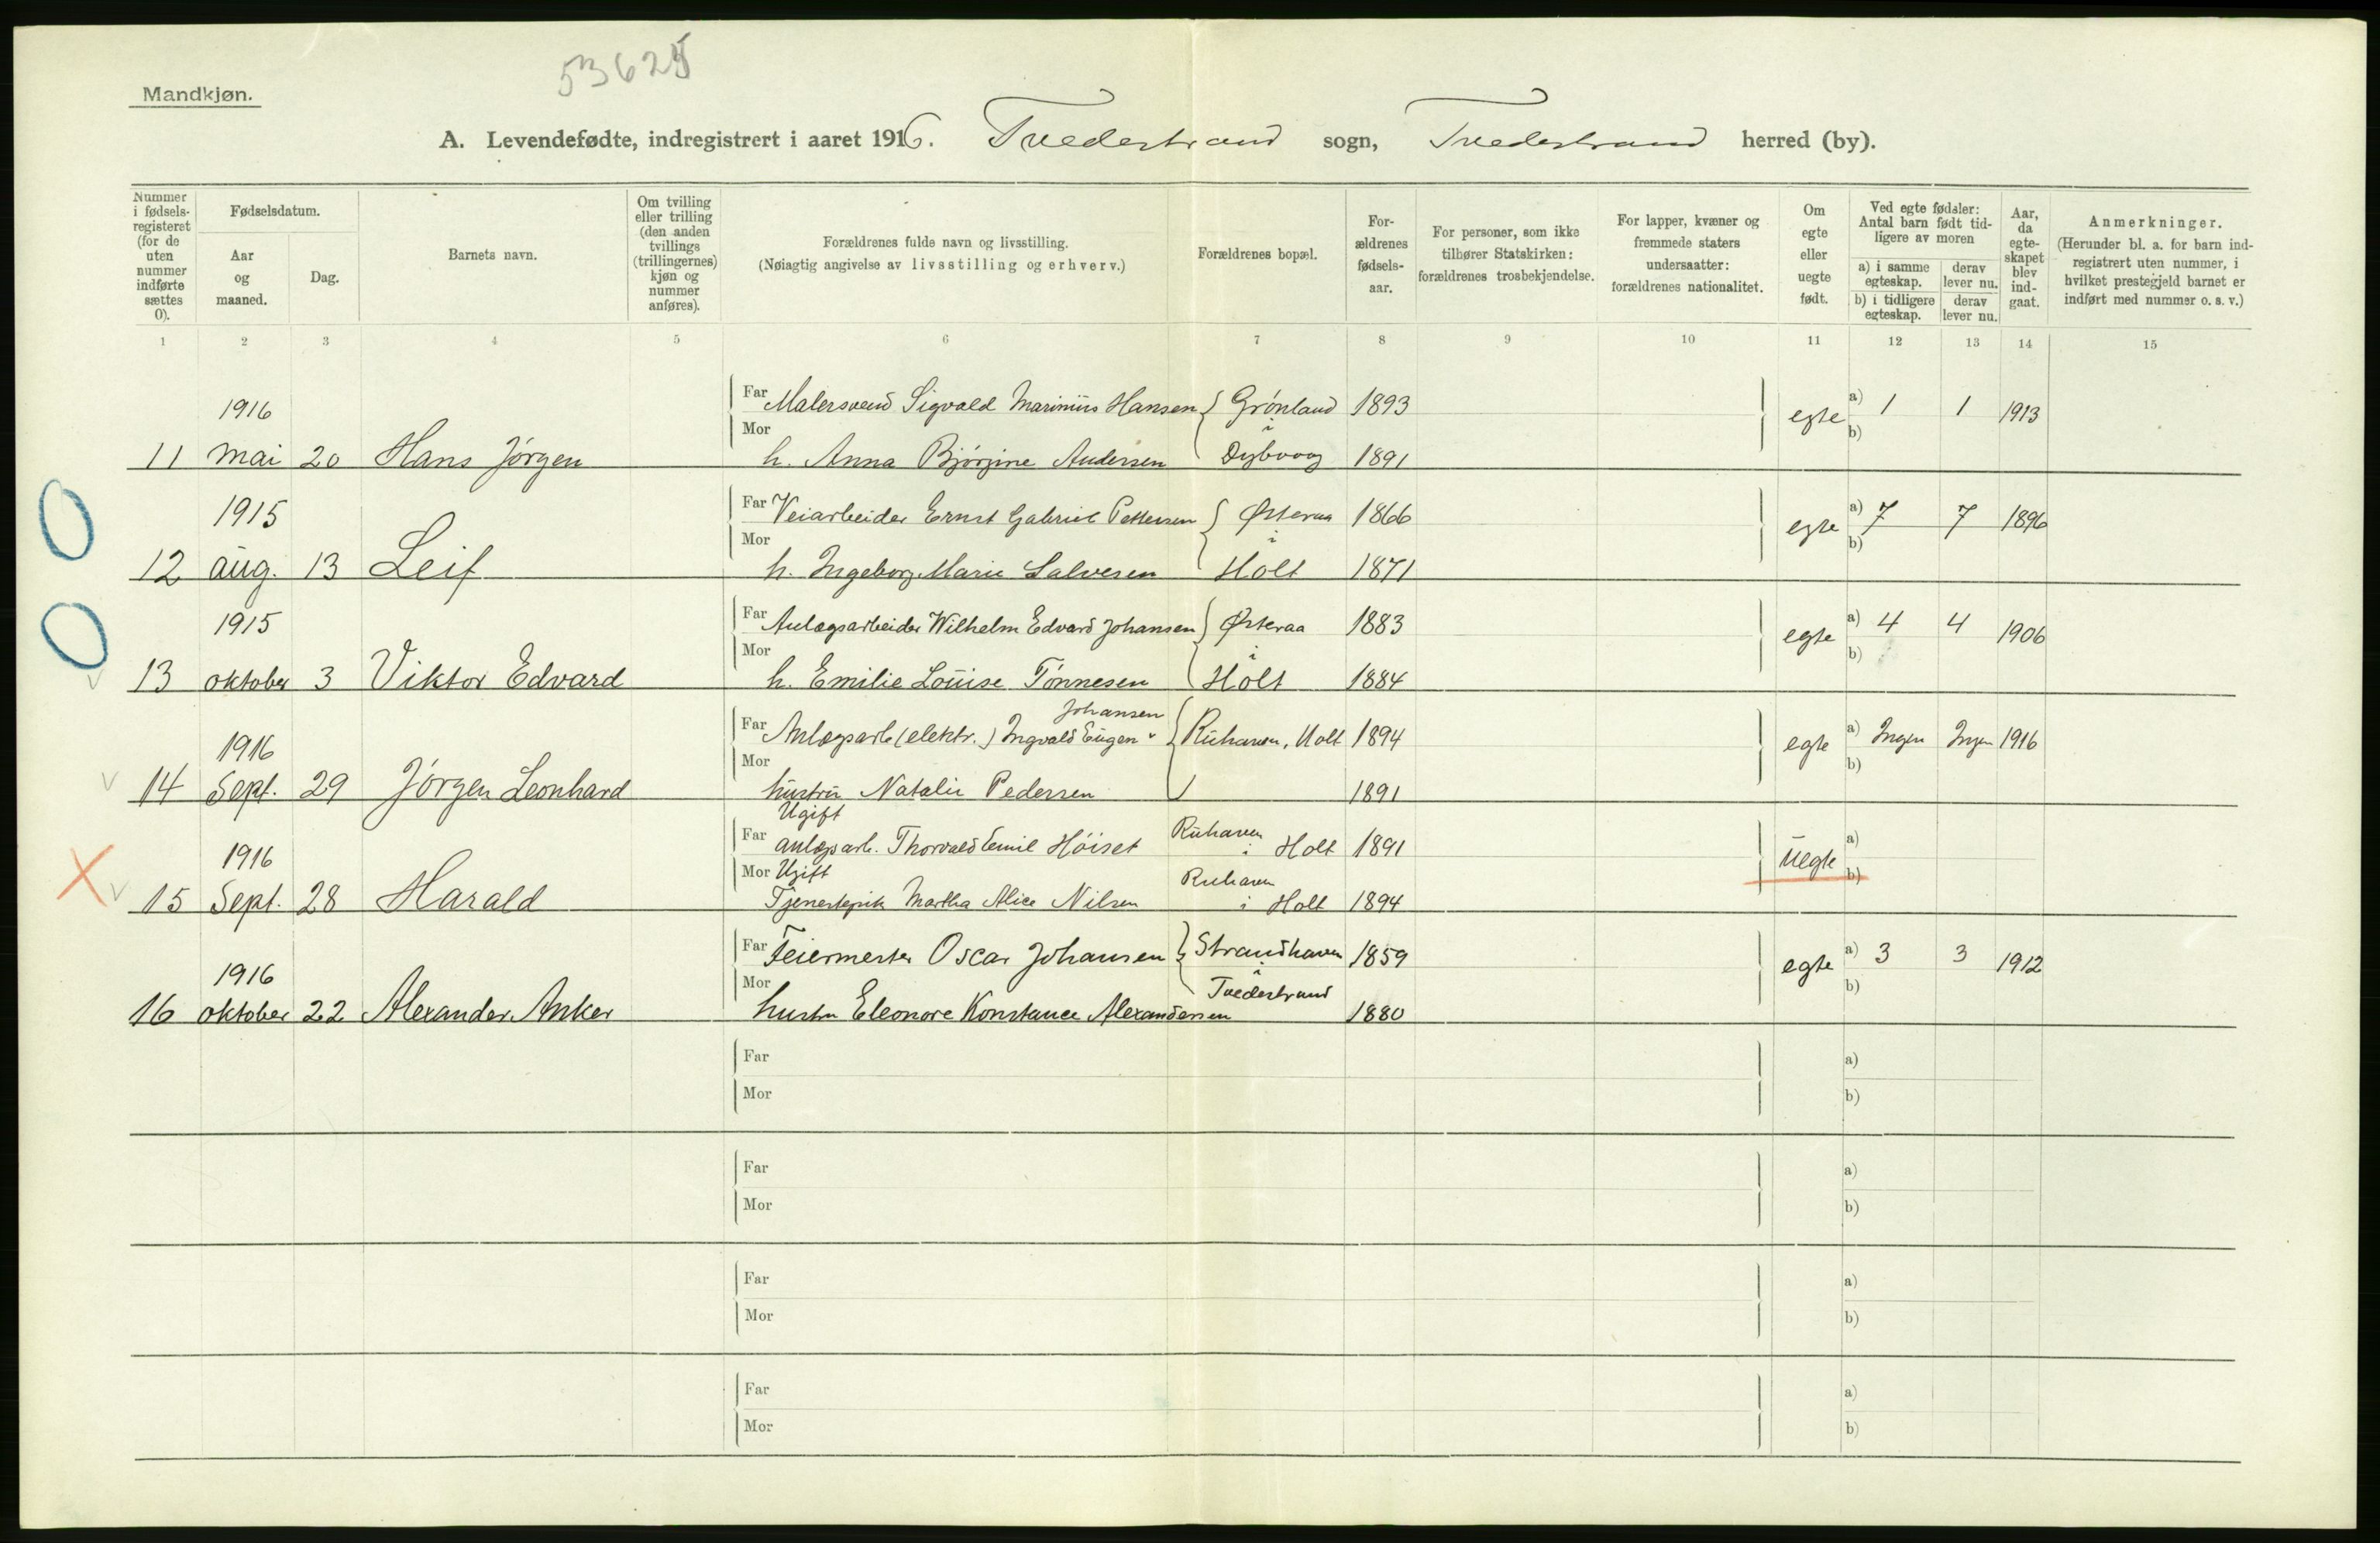 53625
Mandkjøn.
A. Levendefødte, indregistrert i aaret 1916. Tvedestrand sogn, Tvedestrand herred (by).
Nummer i fødsels-registeret (for de uten nummer indførte sættes 0).
Fødselsdatum.
Aar og maaned.
Dag.
Barnets navn.
Om tvilling eller trilling (den anden tvillings (trillingernes) kjøn og nummer anføres).
Forældrenes fulde navn og livsstilling.
(Nøiagtig angivelse av livsstilling og erhverv.)
Forældrenes bopæl.
For-ældrenes fødsels-aar.
For personer, som ikke tilhører Statskirken: forældrenes trosbekjendelse.
For lapper, kvæner og fremmede staters undersaatter: forældrenes nationalitet.
Om egte eller uegte født.
Ved egte fødsler: Antal barn født tid-ligere av moren
a) i samme egteskap. derav lever nu.
b) i tidligere egteskap. derav lever nu.
Aar, da egte-skapet blev ind-gaat.
Anmerkninger.
(Herunder bl. a. for barn ind-registrert uten nummer, i hvilket prestegjeld barnet er indført med nummer o. s. v.)
1 2 3 4 5 6 7 8 9 10 11 12 13 14 15
1916 Far Malersvend Sigvald Marinius Hansen Grønland 1893 egte a) 1 1 1913
Mor i b)
11 mai 20 Hans Jørgen h. Anna Bjørgine Andersen Dybvaag 1891
1915 Far Veiarbeider Ernst Gabriel Pettersen Østeraa 1866 egte a) 7 7 1896
Mor i b)
12 aug. 13 Leif h. Ingeborg Marie Salvesen Holt 1871
1915 Far Anlægsarbeider Wilhelm Edvard Johansen Østeraa 1883 egte a) 4 4 1906
Mor i b)
13 oktober 3 Viktor Edvard h. Emilie Louise Tønnesen Holt 1884
Johansen
1916 Far Anlægsarb (elektr.) Ingvald Eugen Ruhaven, Holt 1894 egte a) Ingen Ingen 1916
Mor b)
14 Sept. 29 Jørgen Leonhard hustru Natalie Pedersen 1891
Ugift
1916 Far anlægsarb. Thorvald Emil Høiset Ruhaven i Holt 1891 Uegte a)
Mor Ugift Ruhaven b)
15 Sept. 28 Harald Tjenestepik Martha Alice Nilsen i Holt 1894
1916 Far Feiermester Oscar Johansen Strandhaven 1859 egte a) 3 3 1912
Mor i Tvedestrand b)
16 oktober 22 Alexander Anker hustru Eleonore Konstance Alexandersen 1880
Far a)
Mor b)
Far a)
Mor b)
Far a)
Mor b)
Far a)
Mor b)